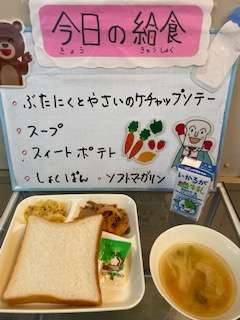 今日の給食
きょう きゅうしょく
・ぶたにくとやさいのケチャップソテー
・スープ
・スィートポテト
・しょくぱん ・ソフトマーガリン
いかるが
牛乳